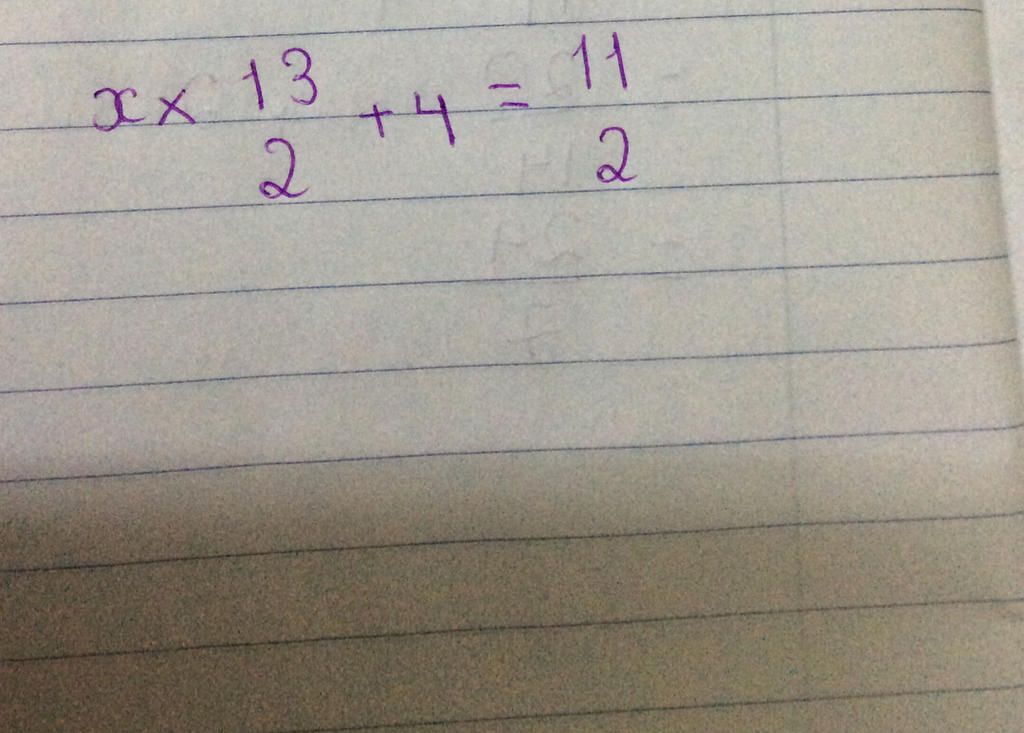 x × 13/2 + 4 = 11/2